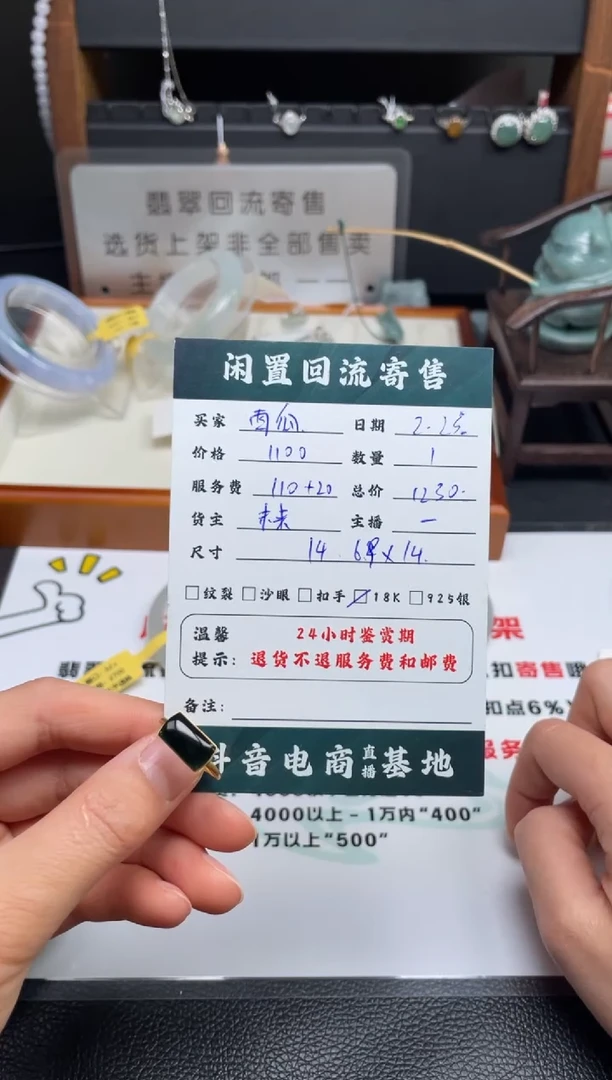 翡翠回流寄售
选货上架非全部售卖
闲置回流寄售
买家 南瓜 日期 2.25
价格 1100 数量 1
服务费 110+20 总价 1230.
货主 未来 主播 一
尺寸 14.
□纹裂 □沙眼 □扣手 ☑18K □925银
温馨 24小时鉴赏期
提示: 退货不退服务费和邮费
备注:
抖音电商直播基地
架
翡翠
扣寄售
扣点6%
服务
4000以上-1万内“400”
1万以上“500”